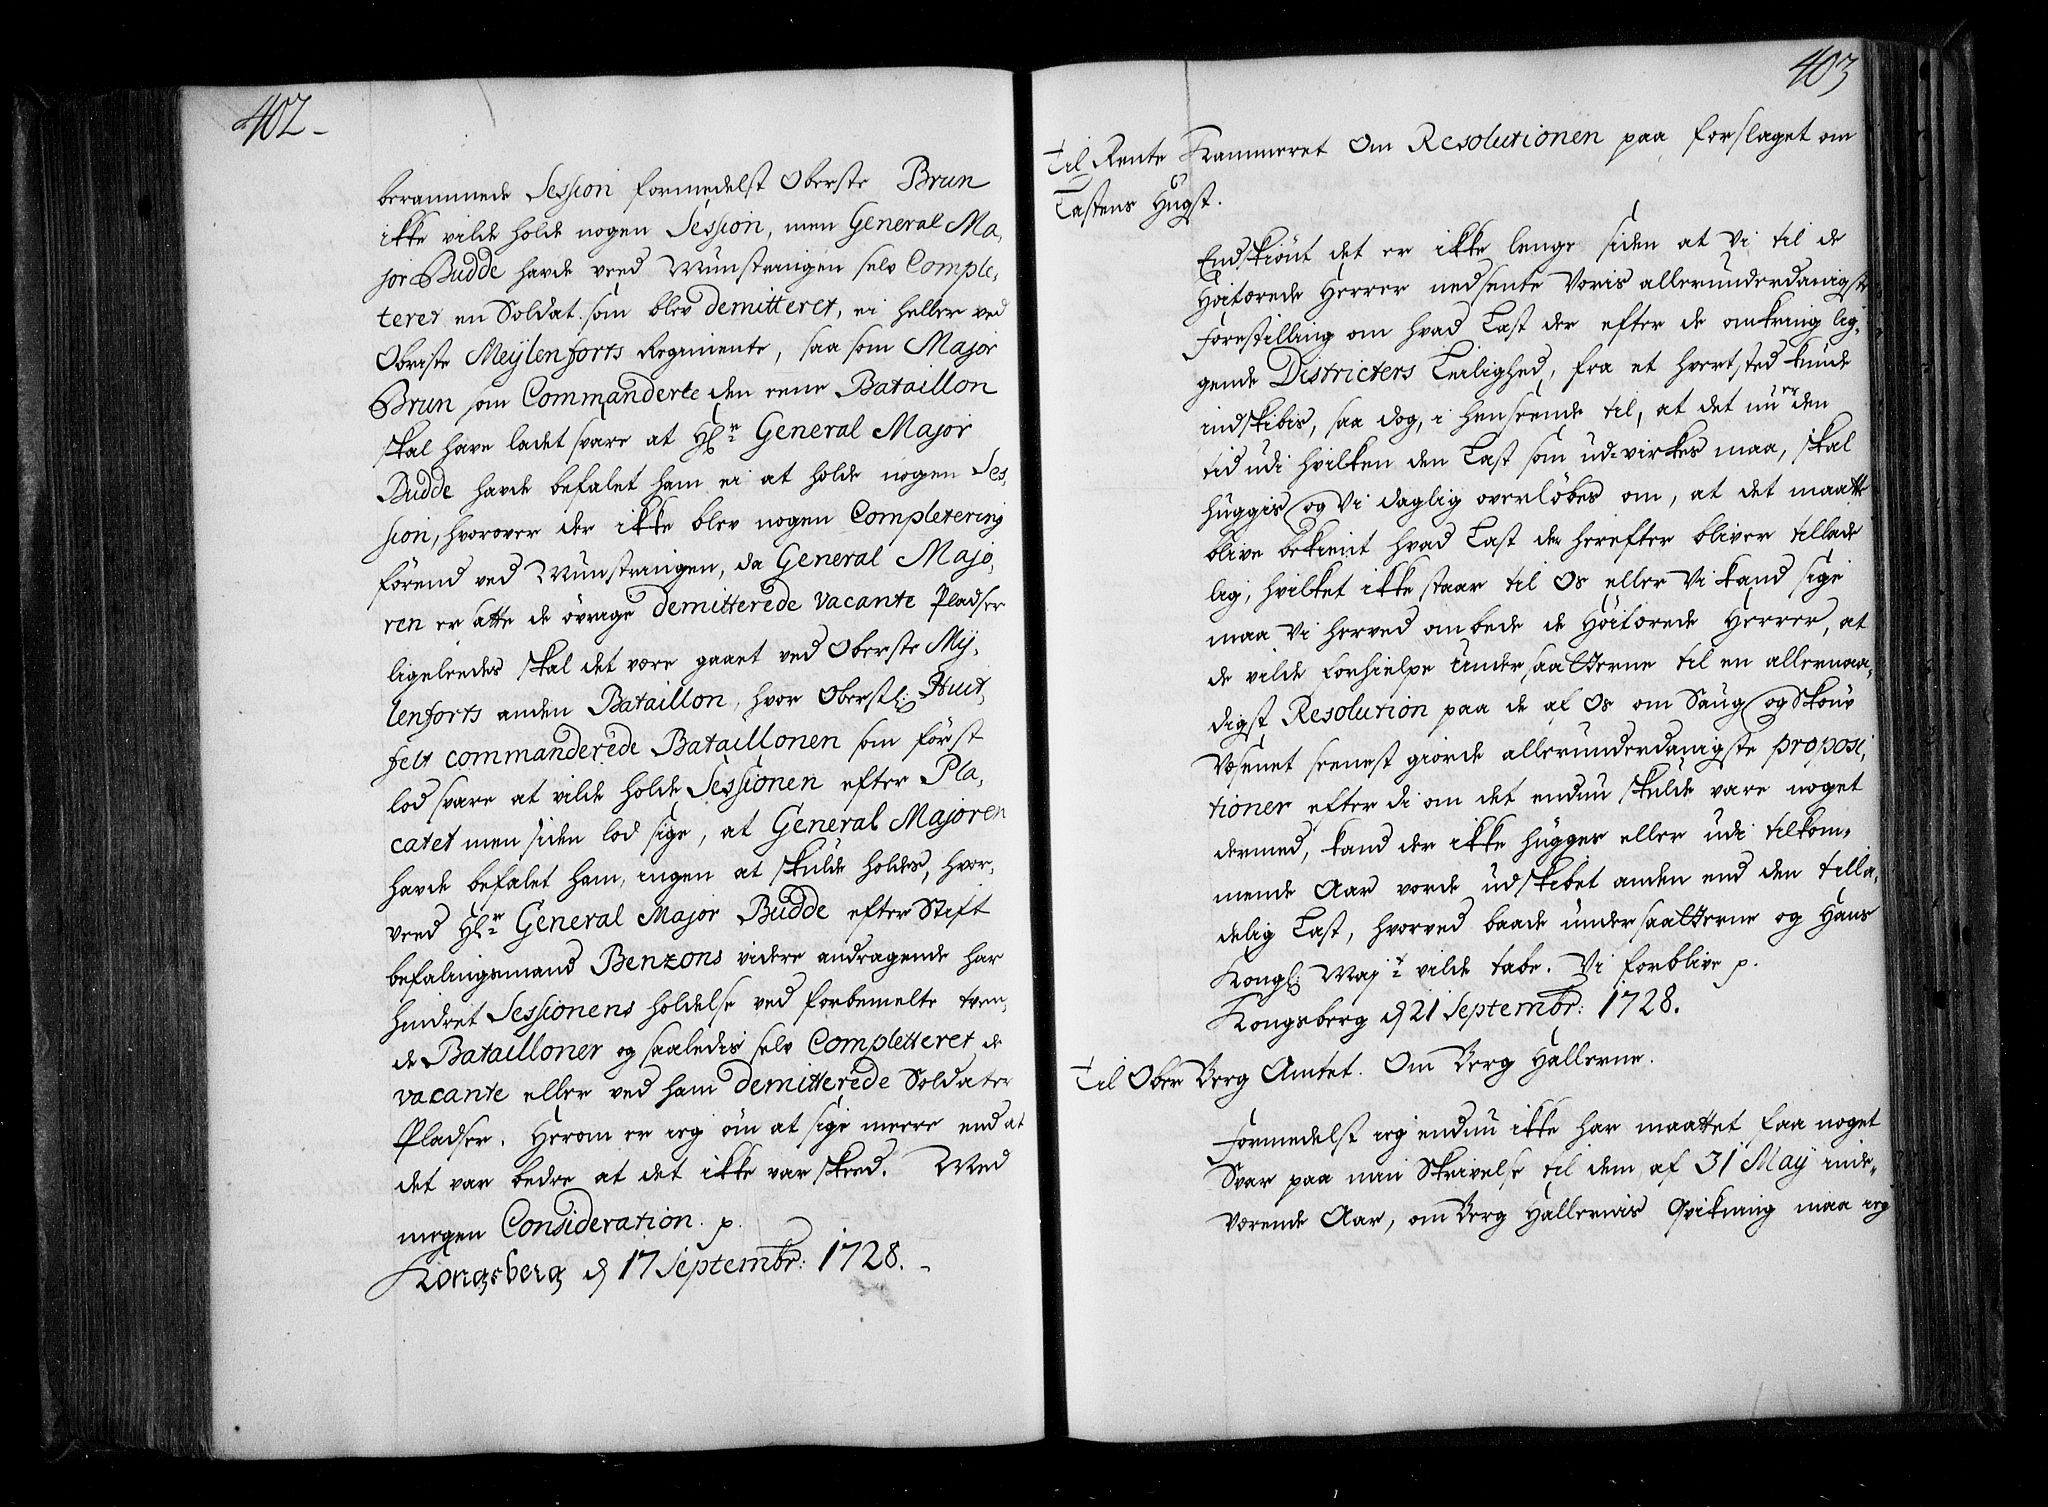 402-
berammede Session formedelst Oberste Brun
ikke vilde holde nogen Session, men General Ma,
jor Budde havde veed Mynstringen selv Comple,
teret en Soldat som blev demitteret, ei heller ved
Obriste Meÿlenforts Regimente, saa som Major
Brun som Commanderte den eene Bataillon
skal have ladet svare at Hr General Major
Budde havde befalet ham ei at holde nogen Ses,
sion, hvorover der ikke blev nogen Completering
förend ved Mynstringen, da General Majo,
ren er satte de övrige demitterede vacante Pladser
ligeleedes skal det være gaaet ved Oberste Mÿ,
lenforts anden Bataillon, hvor Oberstl: Huit,
felt commanderede Bataillonen som först
lod svare at vilde holde Sessionen efter Pla,
catet men siden lod sige, at General Majoren
havde befalet ham, ingen at skulde holdes, hvor,
veed Hr General Major Budde efter Stift
befalingsmand Benzons videre andragende har
hindret Sessionens holdelse ved forbemelte tven,
de Batailloner og saaledis selv Completteret de
vacante eller ved ham demitterede Soldater
Pladser. Herom er ieg öm at sige meere end at
det var bedre at det ikke var skeed. Med
megen Consideration. p.
Kongsberg d 17 Septembr: 1728.-
403
Til Rente Kammeret Om Resolutionen paa forslaget om
Lastens Hugst.
Endskiönt det er ikke lenge siden at Vi til de
Höitærede Herrer nedsente Voris allerunderdanigste
forestilling om hvad Last der efter de omkring lig,
gende Districters Leilighed, fra et hvert sted kunde
indskibis, saa dog, i henseende til, at det nu er den
tid udi hvilken den Last som ud-virkes maa, skal
huggis og Vi daglig overløbes om, at det maatte
blive bekient hvad Last der herefter bliver tillade
lig, hvilket ikke staar til Os eller Vi kand sige
maa Vi herved ombede de Höitærede Herrer, at
de vilde forhielpe Undersaatterne til en allernaa,
digst Resolution paa de af Os om Saug og Skouv
Væsenet seenest giorde allerunderdanigste proposi,
tioner efter di om det endnu skulde vare noget
dermed, kand der ikke hugges eller udi tilkom,
mende Aar vorde udskibet anden end den tilla,
delig Last, hvorved baade undersaatterne og Hans
Kongl: Majt vilde tabe. Vi forblive p.
Kongsberg d 21 Septembr: 1728.
Til Ober Berg Amtet. Om Berg Hallerne.
Formedelst ieg endnu ikke har maattet faa noget
Svar paa min Skrivelse til dem af 31 Maÿ inde,
værende Aar, om Berg Hallernis Qvikning maa ieg